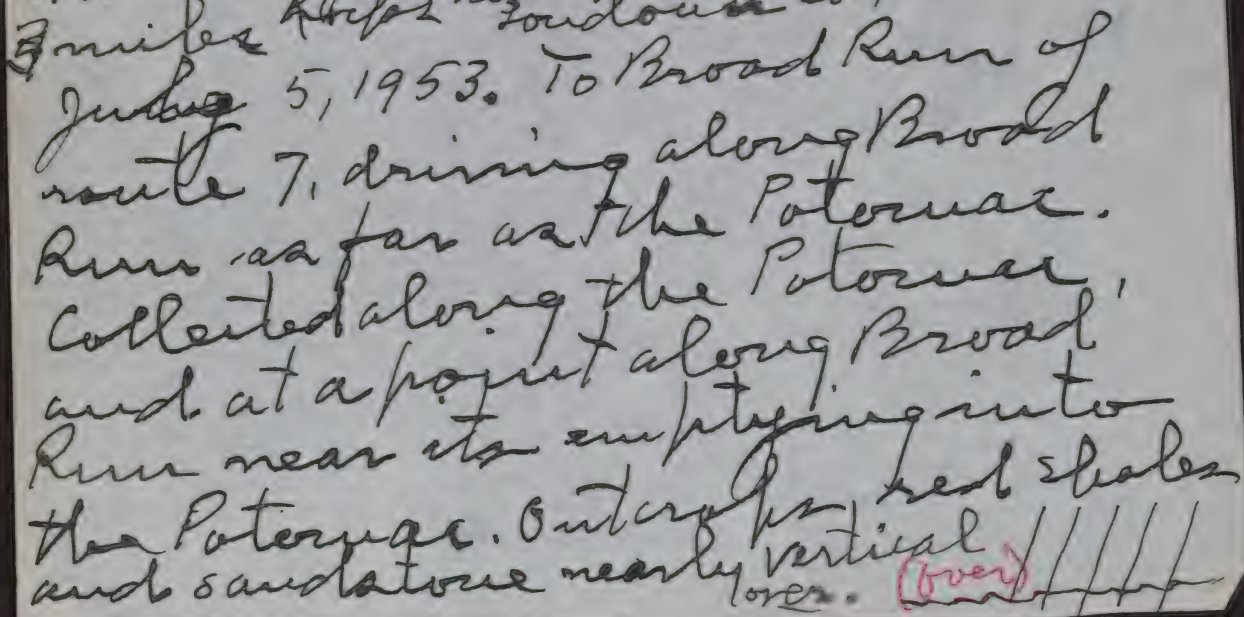 3 miles Loudoun Co.,
July 5, 1953. To Broad Run of
route 7, driving along Broad
Run as far as the Potomac.
Collected along the Potomac,
and at a point along Broad
Run near its emptying into
the Potomac. Outcrops, red shales
and sandstone nearly vertical
over. (over)